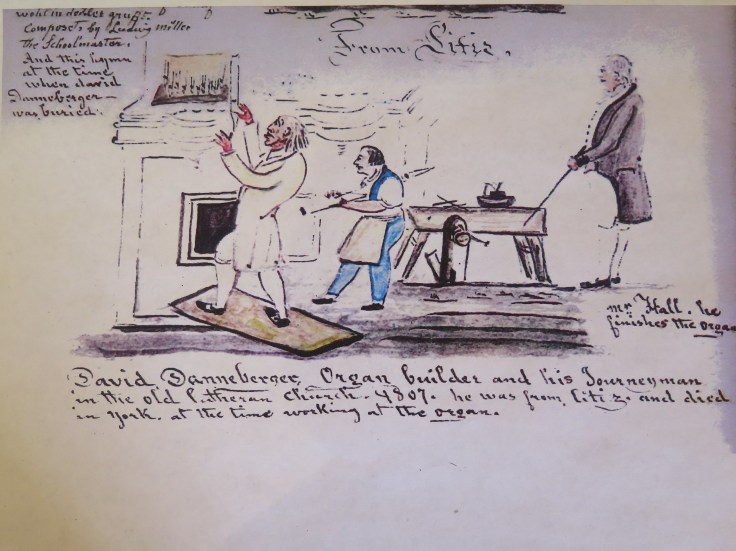 wohl in
Composets by Ludwig Miller
the Schoolmaster.
And this hymn
at the time
when david
Danneberger
was buried.
From Litiz.
mr. Hall. he
finishes the organ
David Danneberger, Organ builder and his Journeyman
in the old Lutheran Church. 1807. he was from Litiz. and died
in York. at the time working at the organ.